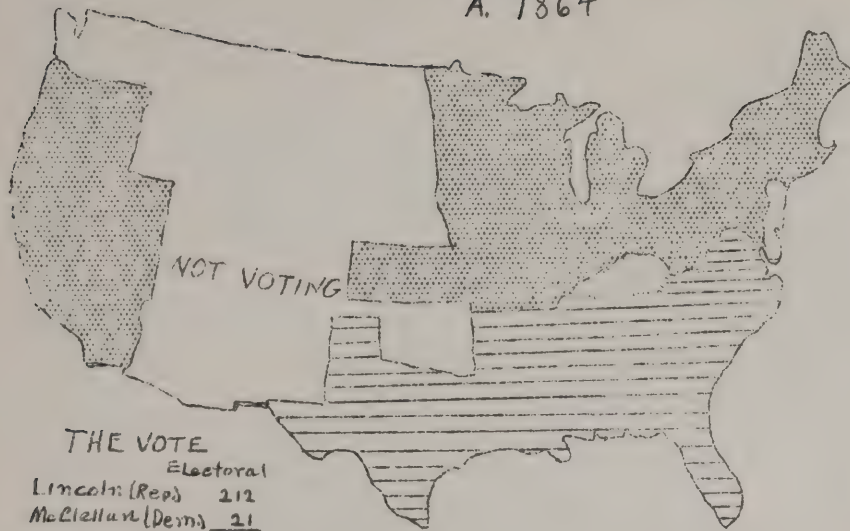 A. 1864
NOT VOTING
THE VOTE
Electoral
Lincoln (Rep) 212
McClellan (Dem) 21